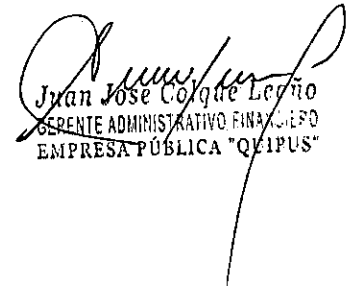 Juan José Colque Leaño
GERENTE ADMINISTRATIVO FINANCIERO
EMPRESA PÚBLICA "QUIPUS"